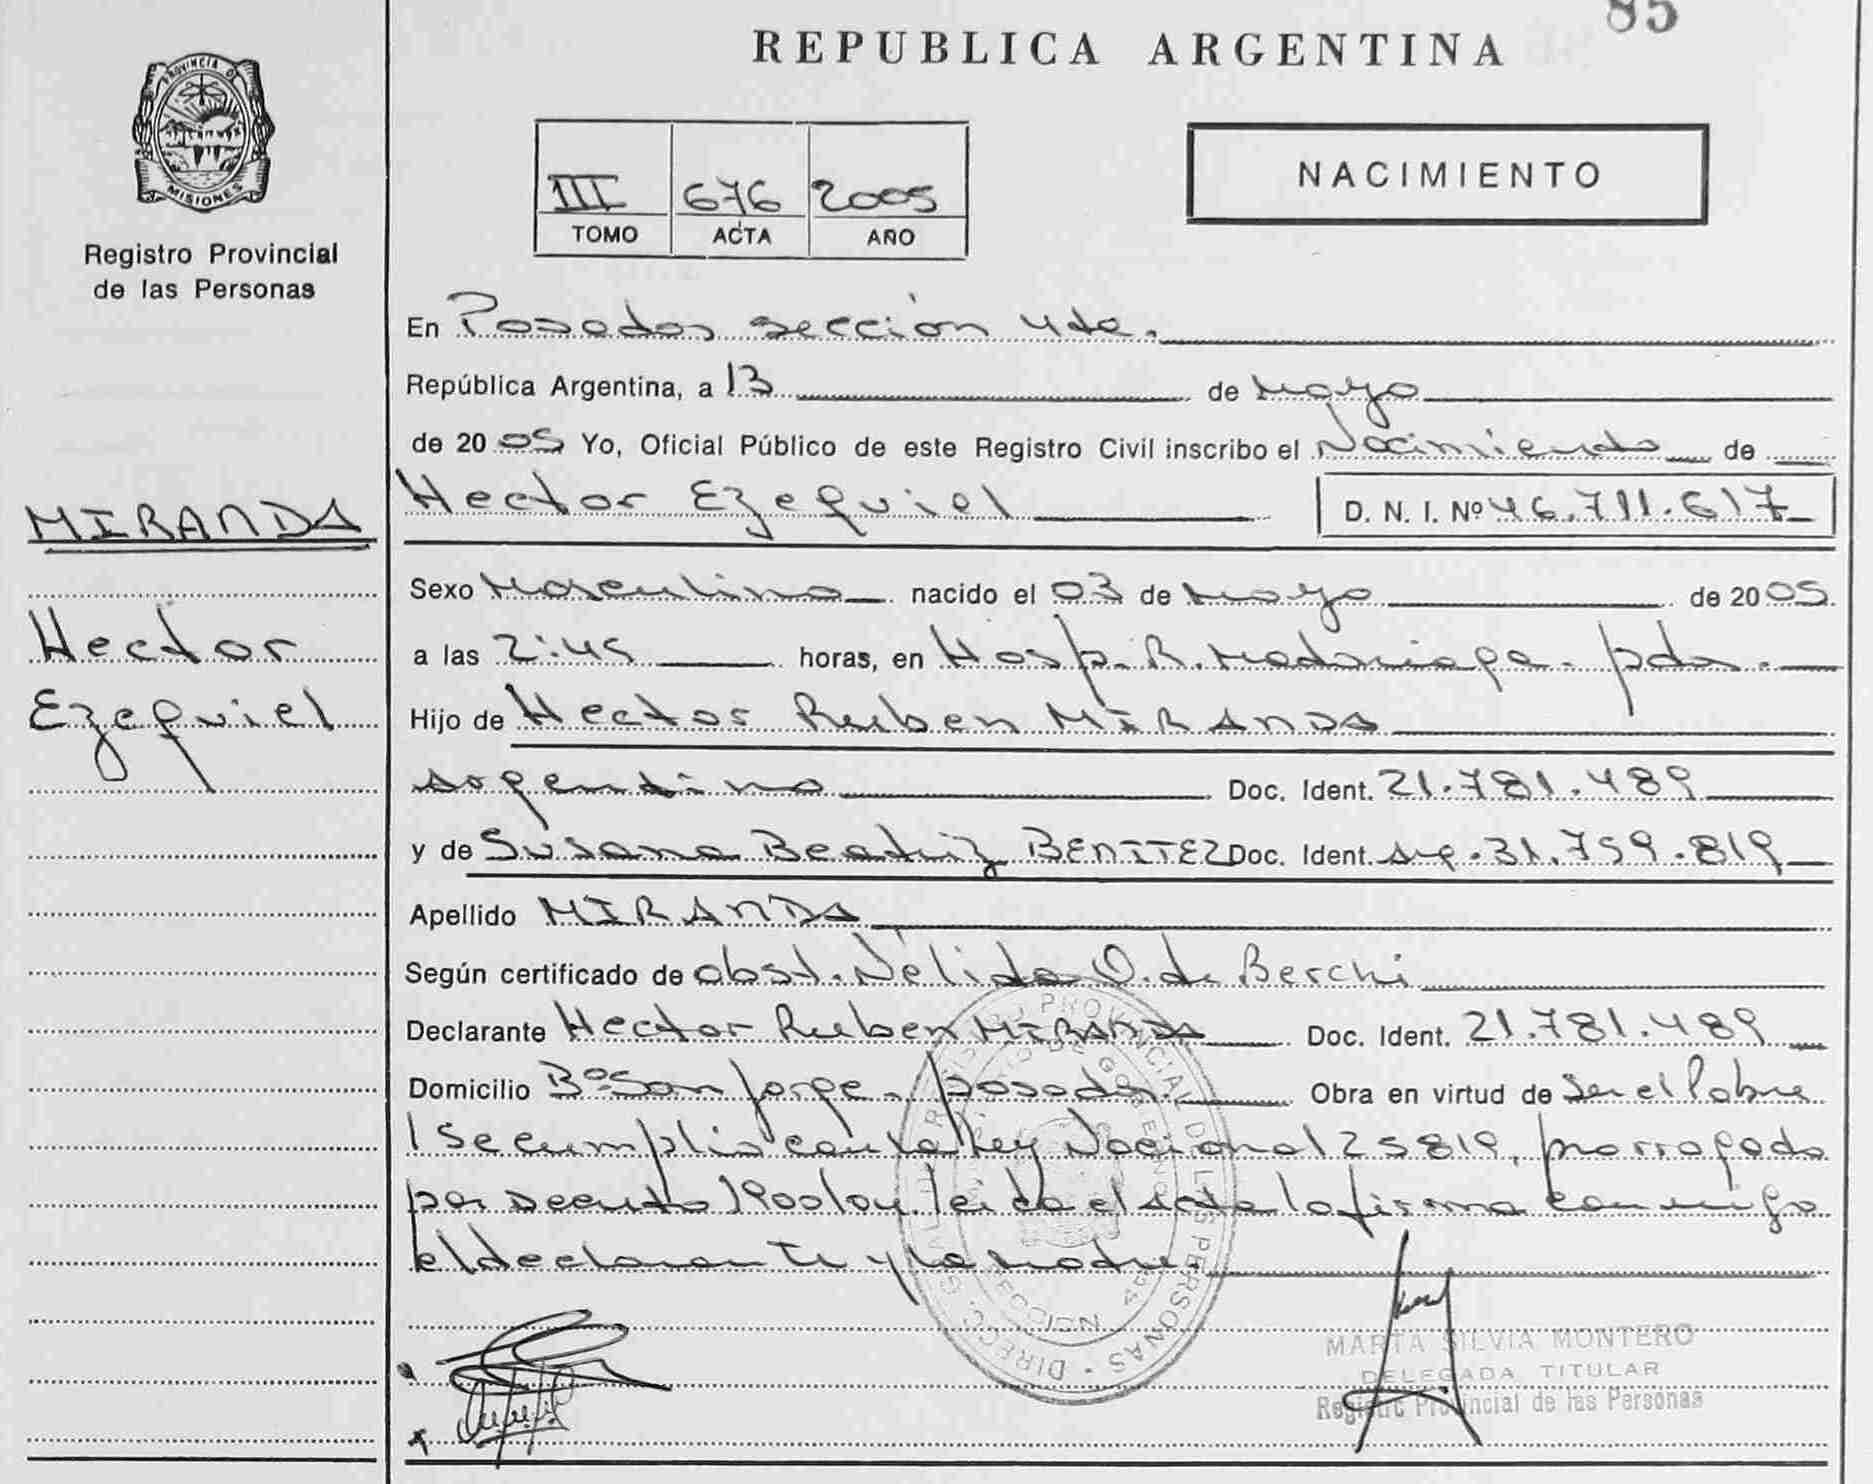 85
REPUBLICA ARGENTINA
PROVINCIA DE
MISIONES
Registro Provincial
de las Personas
III 676 2005
TOMO ACTA AÑO
NACIMIENTO
En Posadas sección 4ta.
República Argentina, a 13 de Mayo
de 2005 Yo, Oficial Público de este Registro Civil inscribo el Nacimiento de
MIRANDA
Hector Ezequiel D. N. I. Nº 46.711.617
Sexo Masculino nacido el 03 de Mayo de 2005.
Hector
a las 2:45 horas, en Hosp. R. Madariaga. pdas.
Ezequiel
Hijo de Hector Ruben MIRANDA
argentino Doc. Ident. 21.781.489
y de Susana Beatriz BENITEZ Doc. Ident. Arg. 31.759.819
Apellido MIRANDA
Según certificado de obst. Nélida O. de Berchi
Declarante Hector Ruben MIRANDA Doc. Ident. 21.781.489
Domicilio Bº San Jorge. posadas. Obra en virtud de Ser el Padre
Se cumplio con la Ley Nacional 25819, prorrogada
por decreto 1900/04. leida el acta la firma conmigo
el declarante y la madre.
REGISTRO PROVINCIAL DE LAS PERSONAS
MARTA SILVIA MONTERO
DELEGADA TITULAR
Registro Provincial de las Personas